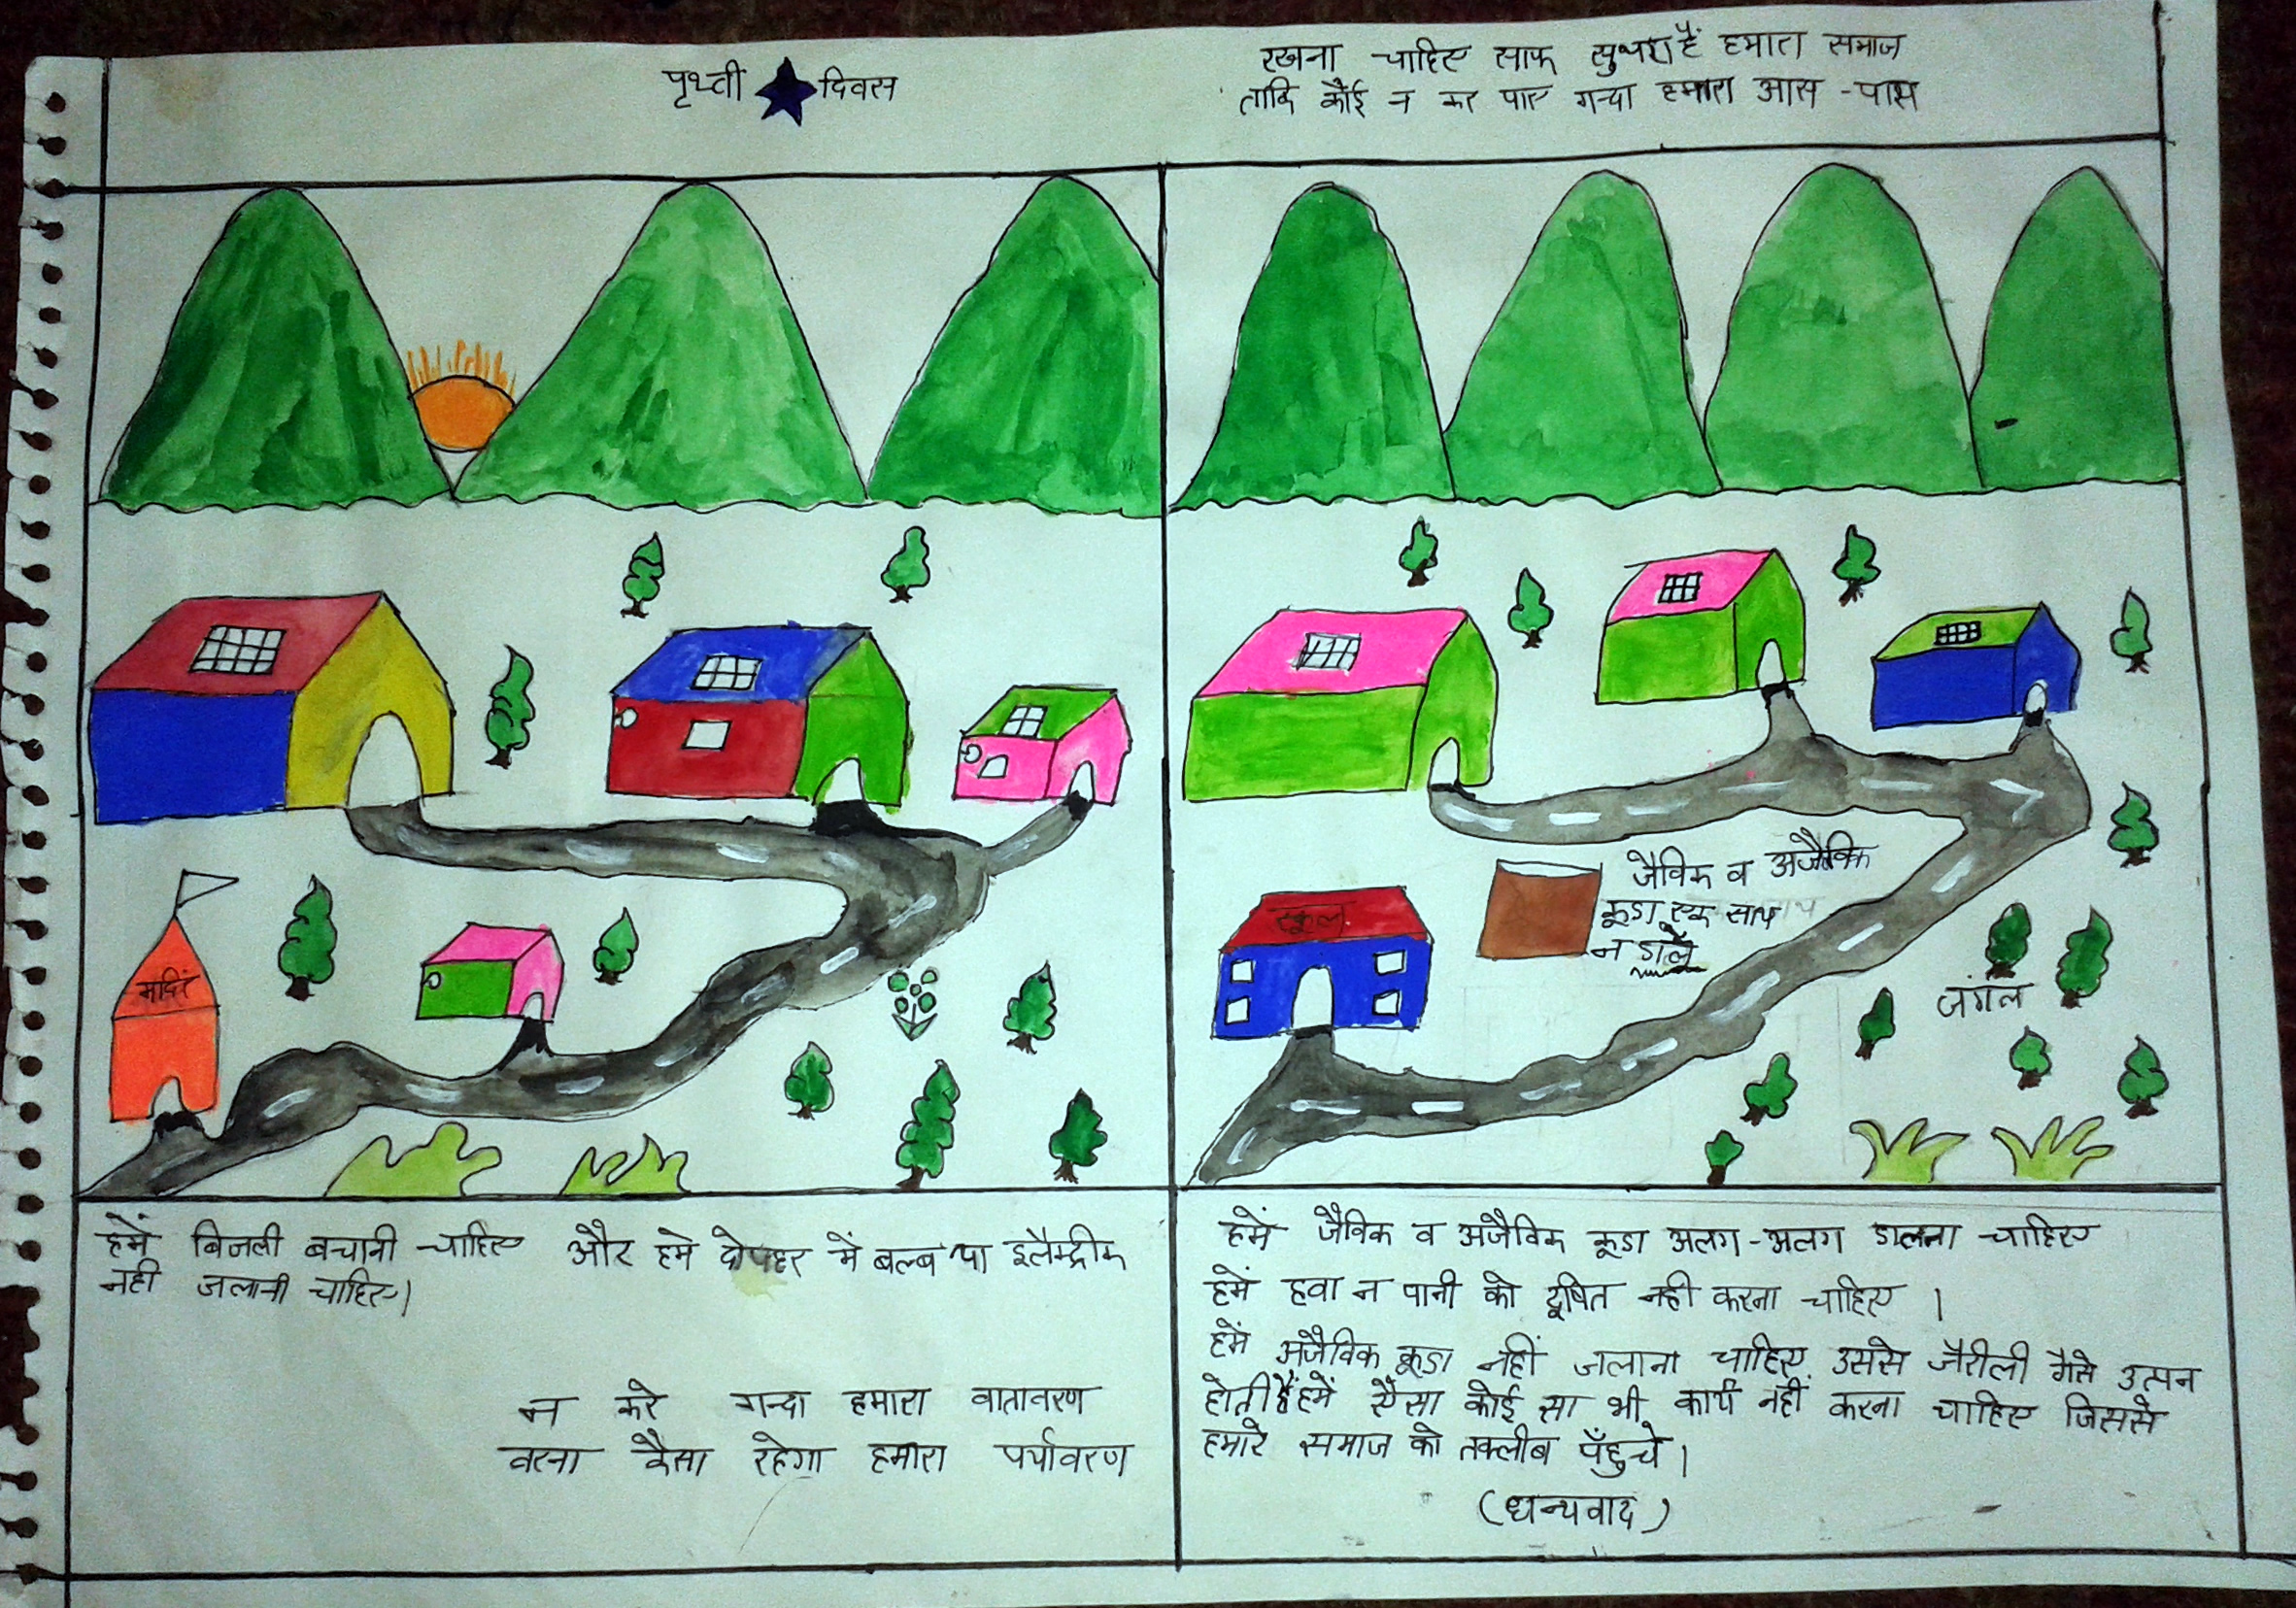 पृथ्वी दिवस
रखना चाहिए साफ सुथरा हैं हमारा समाज
ताकि कोई न कर पाए गन्दा हमारा आस -पास
मन्दिर
स्कूल
जैविक व अजैविक
कूडा एक साथ
न डाले
जंगल
हमें बिजली बचानी चाहिए और हमे दोपहर में बल्ब या इलैम्द्रीक
नही जलानी चाहिए।
न करे गन्दा हमारा वातावरण
वरना कैसा रहेगा हमारा पर्यावरण
हमें जैविक व अजैविक कूडा अलग-अलग डालना चाहिए
हमें हवा न पानी को दूषित नही करना चाहिए ।
हमें अजैविक कूडा नहीं जलाना चाहिए उससे जैरीली गैसे उत्पन
होती हैं हमें ऐसा कोई सा भी कार्य नहीं करना चाहिए जिससे
हमारे समाज को तक्लीब पँहुचे।
(धन्यवाद)